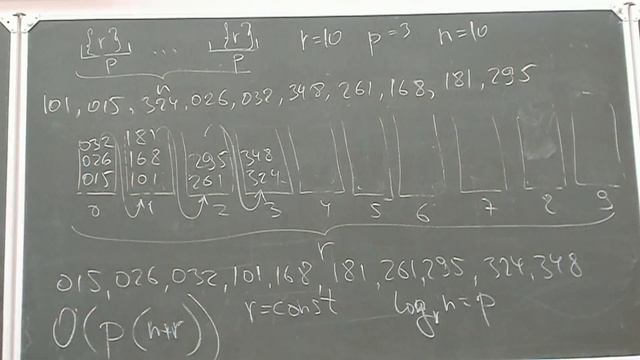 {r} ... {r} r=10 p=3 n=10
p p
n
101, 015, 324, 026, 032, 348, 261, 168, 181, 295
032 181
026 168 295 348
015 101 261 324
0 1 2 3 4 5 6 7 8 9
r
015, 026, 032, 101, 168, 181, 261, 295, 324, 348
O(p(n+r)) r=const log_r n=p